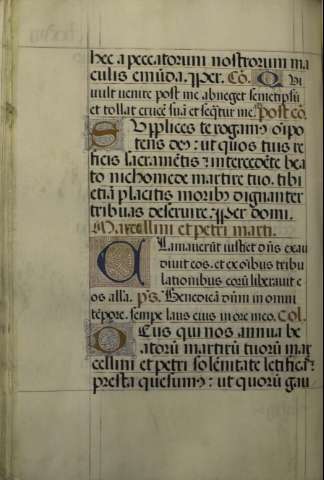 hec a peccatorum nostrorum ma
culis emūda. ꝑer. Cō. Qui
vult venire post me abneget semetipsū
et tollat crucē suā et seq̄tur me. Post cō.
Supplices te rogamꝰ oīpo
tens deꝰ: ut quos tuis re
ficis sacramētis: intercedēte bea
to nichomede martire tuo. tibi
etiā placitis moribꝰ dignanter
tribuas deseruire. ꝑer domi.
Marcellini et petri marti.
Clamauerūt iusti et dn̄s exau
diuit eos. et ex oībus tribu
lationibus eorū liberauit e
os alla. p̄s. Benedicā dn̄m in omni
tēpore. sempe laus eius in ore meo. Col.
Deus qui nos annua be
atorū martirū tuorū mar
cellini et petri solēnitate letificas:
presta quesumꝰ: ut quorū gau